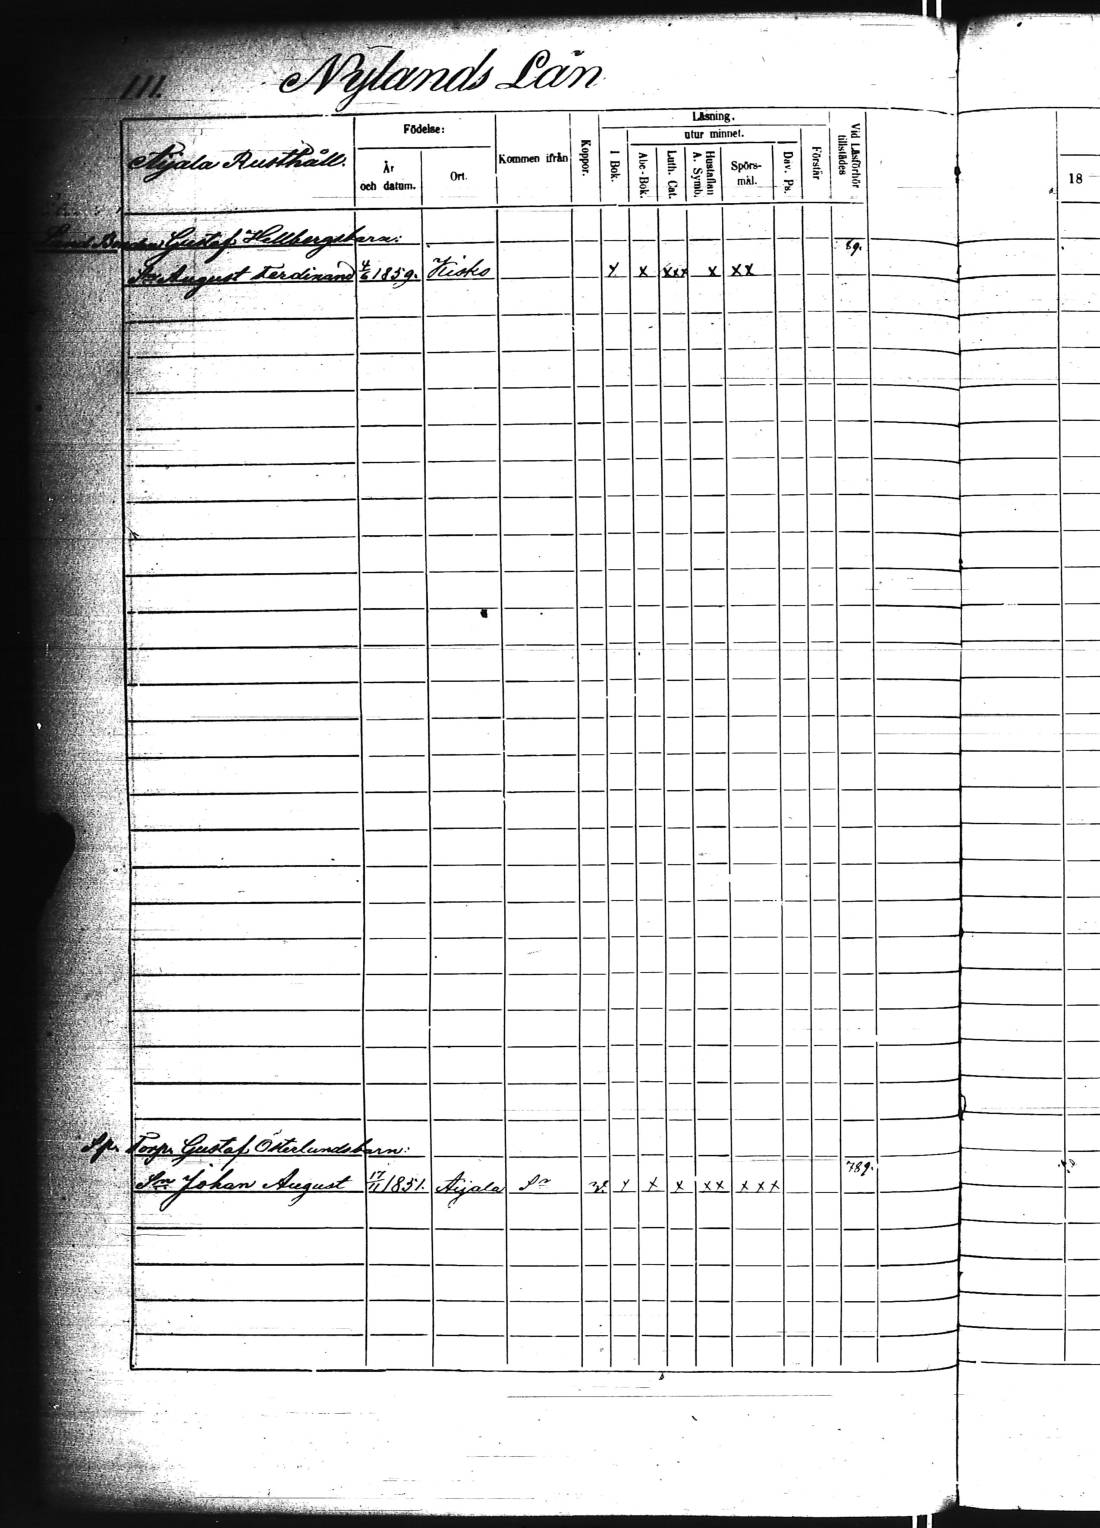 111.
Nylands Län
Aijala Rusthåll.
Födelse:
År och datum.
Ort.
Kommen ifrån
Koppor.
Läsning.
I Bok.
utur minnet.
Abc-Bok.
Luth. Cat.
Hustaflan A. Symb.
Spörs-mål.
Dav. Ps.
Förstår
Vid Läsförhör tillstädes
18
Land Bonden Gustaf Hellbergs barn: 89.
Sm August Ferdinand 4/6 1859. Kisko x x xxx x xx
Sp. Torp. Gustaf Österlunds barn: 789.
Sm Johan August 17/11 1851. Aijala v. x x x xx xxx